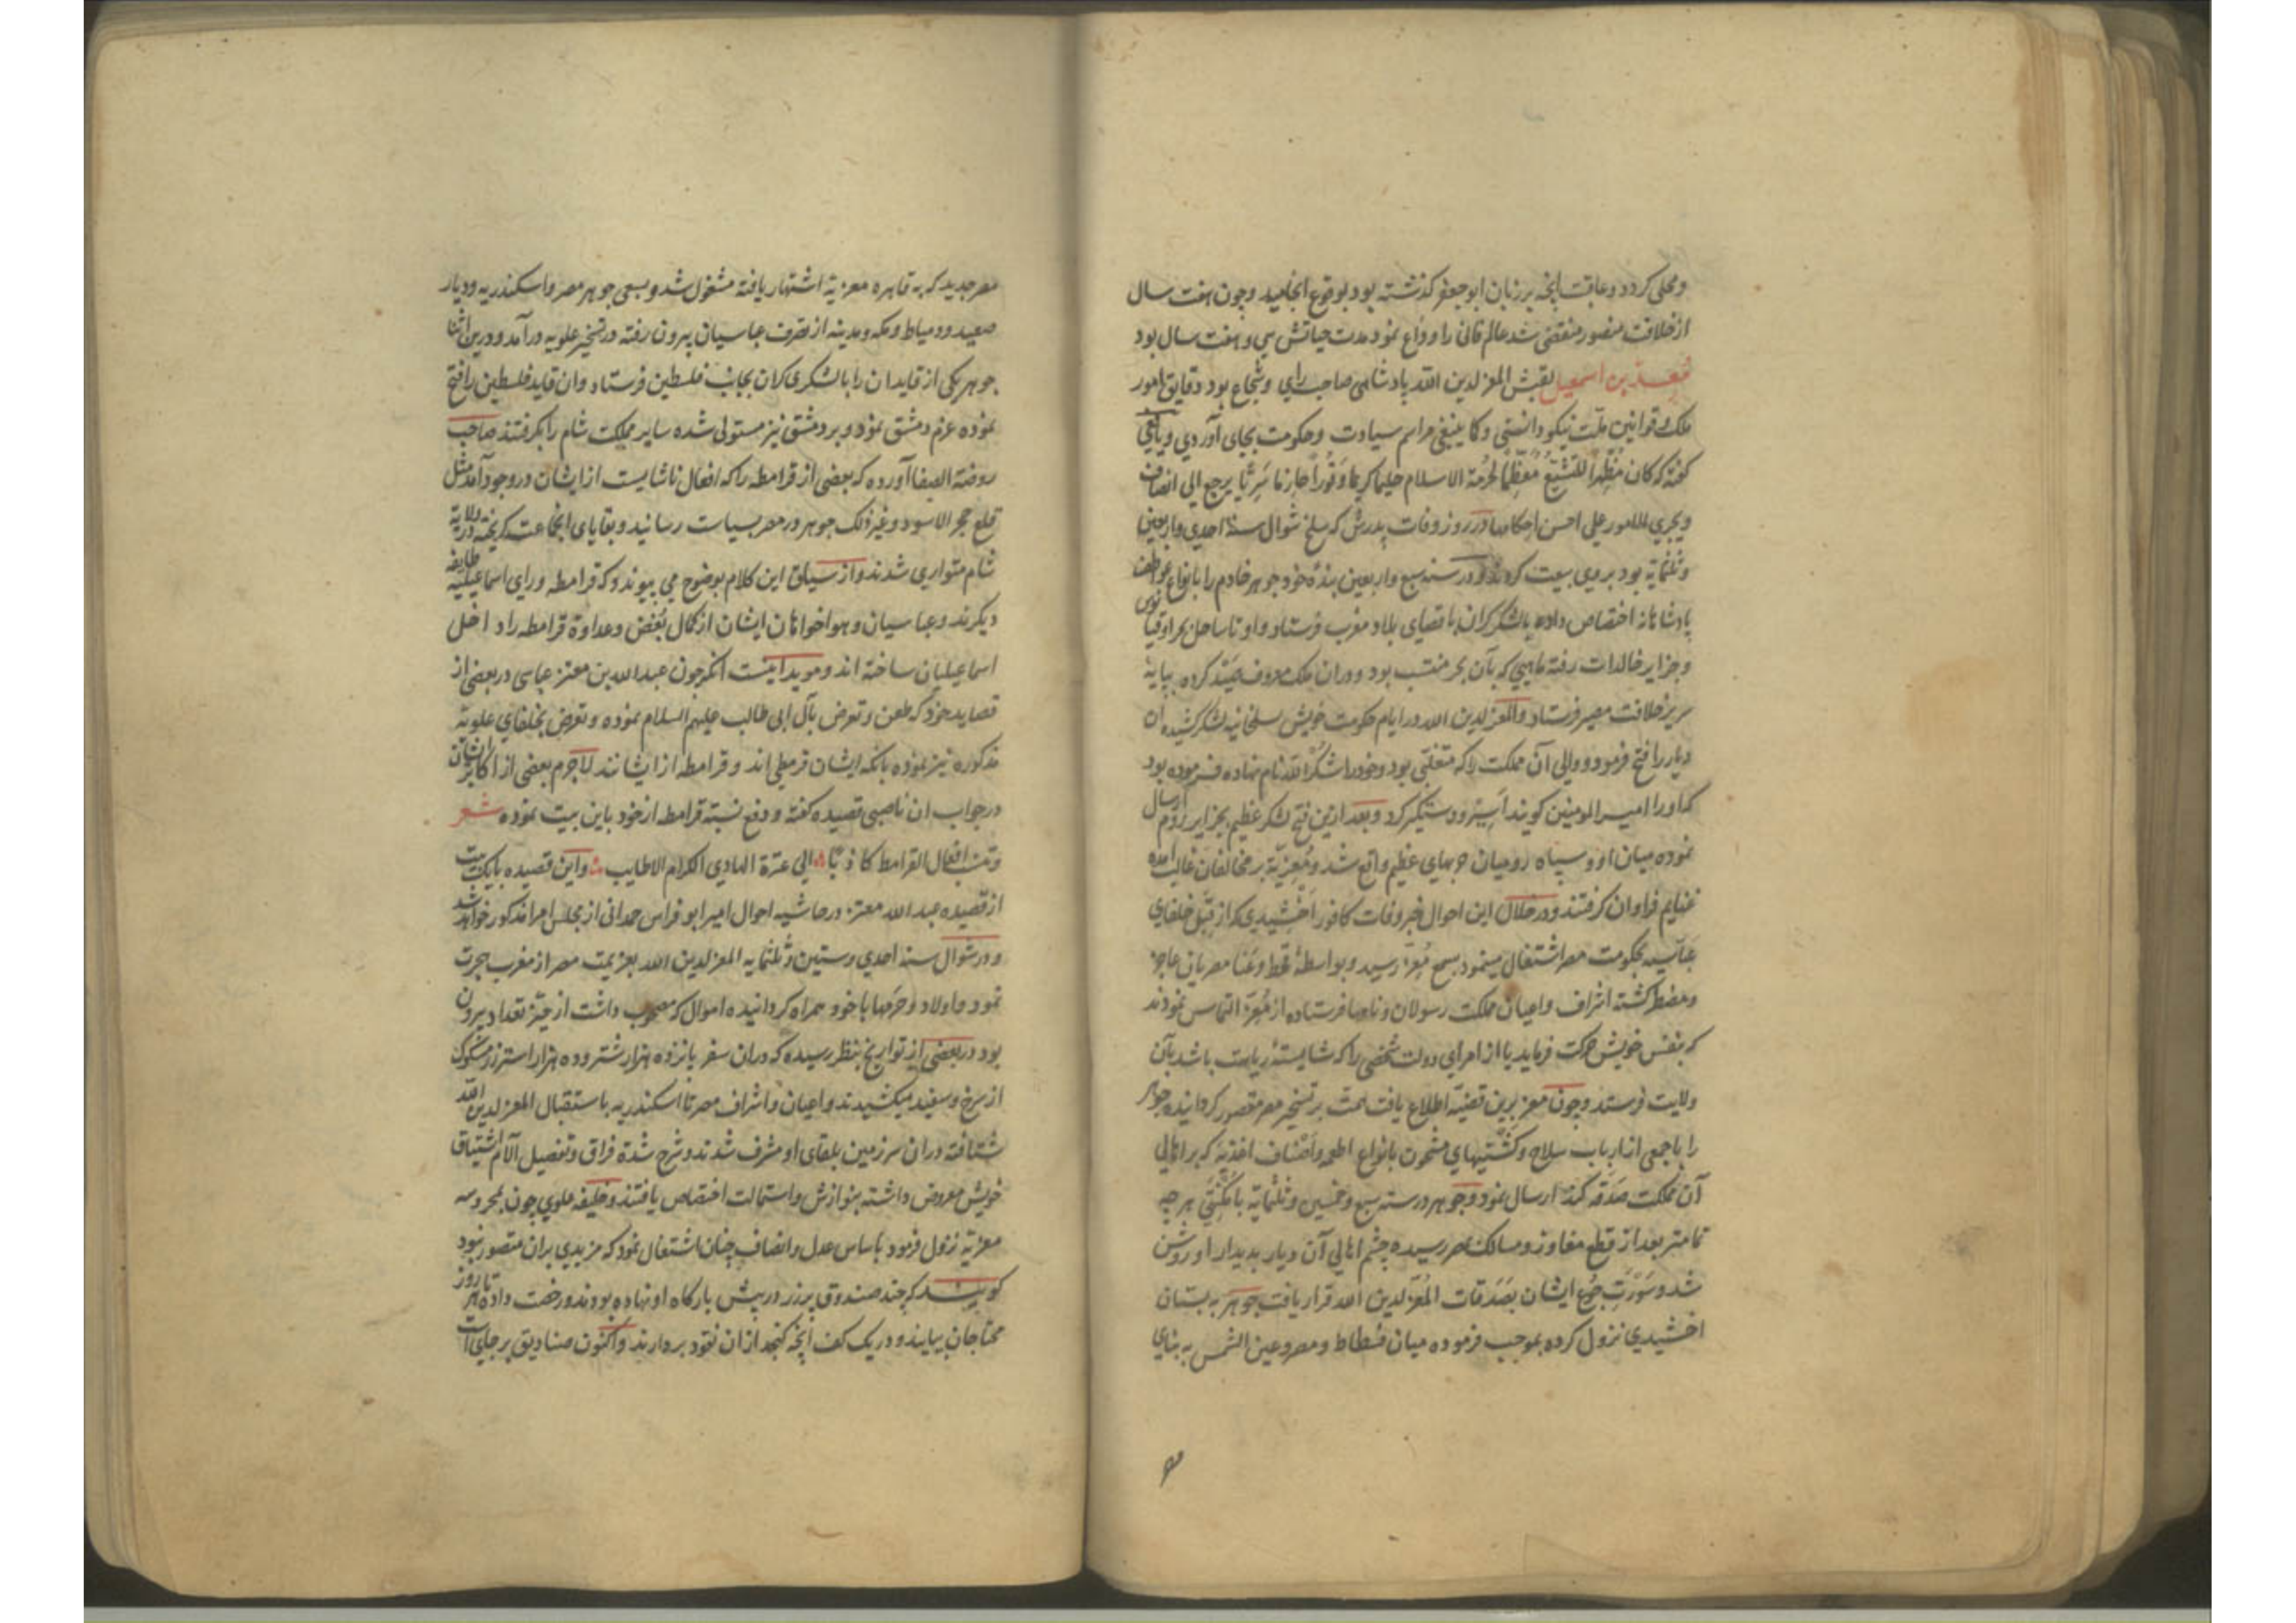 ومحلی کردد وعاقبت انچه بر زبان ابوجعفر کذشته بود بوقوع انجامید وچون هفت سال
از خلافت منصور منقضی شد عالم فانی را وداع نمود مدت حیاتش سی وهفت سال بود
معد بن اسمعیل لقبش المعز لدین الله پادشاهی صاحب رای وشجاع بود دقایق امور
ملک وقوانین ملت نیکو دانستی وکما ینبغی مراسم سیادت وحکومت بجای آوردی ویافعی
کفته که کان مظهرا للتشیع معظما لحرمة الاسلام حلیما کریما وقورا حازما سریا یرجع الی انصاف
ویجری للامور علی احسن احکامها در روز وفات پدرش که سلخ شوال سنة احدی واربعین
وثلثمایة بود بر وی بیعت کردند ودر سنه سبع واربعین بندۀ خود جوهر خادم را بانواع عواطف
پادشاهانه اختصاص داده بالشکر کران باقصای بلاد مغرب فرستاد واو تا ساحل بحر اوقیانوس
وجزایر خالدات رفته ماهیی که بآن بحر منتسب بود ودران ملک معروف کرده بپایۀ
سریر خلافت مصیر فرستاد والمعز لدین الله در ایام حکومت خویش بسلجمانیه لشکر کشیده ان
دیار را فتح فرمود ووالی آن مملکت را که متغلبی بود وخود را شکر الله نام نهاده فرموده بود
که او را امیر المومنین کویند اسیر ودستکیر کرد وبعد ازین فتح لشکر عظیم بجزایر روم ارسال
نموده میان او وسپاه رومیان حربهای عظیم واقع شد ومعزیه بر مخالفان غالب آمده
غنایم فراوان کرفتند ودر خلال این احوال خبر وفات کافور اخشیدی که از قبل خلفای
عباسیه بحکومت مصر اشتغال مینمود بسمع معز رسید وبواسطۀ قحط وغنا مصریان عاجز
ومضطر کشته اشراف واعیان مملکت رسولان ونامها فرستاده از معز التماس نمودند
که بنفس خویش حرکت فرماید یا از امرای دولت شخصی را که شایستۀ ریاست باشد بآن
ولایت فرستد وچون معز برین قضیه اطلاع یافت همت بر تسخیر مصر مقصور کردانیده جوهر
را با جمعی از ارباب سلاح وکشتیهای مشحون بانواع اطعمه واصناف اغذیه که بر اهالی
آن مملکت صدقه کند ارسال نمود وجوهر در سنه سبع وخمسین وثلثمایة بامکنتی هر چه
تمامتر بعد از قطع مفاوز ومسالک بمصر رسیده چشم اهالی آن دیار بدیدار او روشن
شد وسورت جوع ایشان بصدقات المعز لدین الله قرار یافت جوهر به بستان
اخشیدی نزول کرده بموجب فرموده میان فسطاط ومصر وعین الشمس به بنای
مصر
مصر جدید که به قاهره معزیة اشتهار یافته مشغول شد وبسعی جوهر مصر واسکندریه ودیار
صعید ودمیاط ومکه ومدینه از تصرف عباسیان بیرون رفته در تسخیر علویه درآمد ودرین اثنا
جوهر یکی از قایدان را بالشکری کران بجانب فلسطین فرستاد وان قاید فلسطین را فتح
نموده عزم دمشق نمود وبر دمشق نیز مستولی شده سایر مملکت شام را بکرفتند صاحب
روضة الصفا آورده که بعضی از قرامطه را که افعال ناشایست از ایشان در وجود آمد مثل
قلع حجر الاسود وغیر ذلک جوهر در مصر بسیاست رسانید وبقایای انجماعت کریخته در ولایة
شام متواری شدند واز سیاق این کلام بوضوح می پیوندد که قرامطه ورای اسماعیلیه طایفه
دیکرند وعباسیان وهواخواهان ایشان از کمال بغض وعداوة قرامطه را داخل
اسماعیلیان ساخته اند وموید اینست انکه چون عبد الله بن معتز عباسی در بعضی از
قصاید خود که طعن وتعرض بآل ابی طالب علیهم السلام نموده وتعرض بخلفای علویه
مذکوره نیز نموده بانکه ایشان قرمطی اند وقرامطه از ایشانند لاجرم بعضی از اکابر ایشان
در جواب ان ناصبی قصیده کفته ودفع نسبة قرامطه از خود باین بیت نموده شعر
وتنسب افعال القرامط کاذبا الی عترة الهادی الکرام الاطایب واین قصیده با یک بیت
از قصیده عبد الله معتز در حاشیه احوال امیر ابو فراس حمدانی از مجلس امرا مذکور خواهد شد
ودر شوال سنه احدی وستین وثلثمایه المعز لدین الله بعزیمت مصر از مغرب حرکت
نمود واولاد وحرمها با خود همراه کردانیده اموال که مصحوب داشت از حیز تعداد بیرون
بود در بعضی از تواریخ بنظر رسیده که دران سفر پانزده هزار شتر وده هزار استر زر مسکوک
از سرخ وسفید میکشیدند واعیان واشراف مصر تا اسکندریه باستقبال المعز لدین الله
شتافته دران سرزمین بلقای او مشرف شدند وشرح شدة فراق وتفصیل آلام اشتیاق
خویش معروض داشته بنوازش واستمالت اختصاص یافتند وخلیفه علوی چون بمحروسه
معزیه نزول فرمود باساس عدل وانصاف چنان اشتغال نمود که مزیدی بران متصور نبود
کویند که چند صندوق پر زر در پیش بارکاه او نهاده بودند ورخصت داده تا هر روز
محتاجان بیایند ودر یک کف انچه کنجد ازان نقود بردارند واکنون صنادیق بر جای است